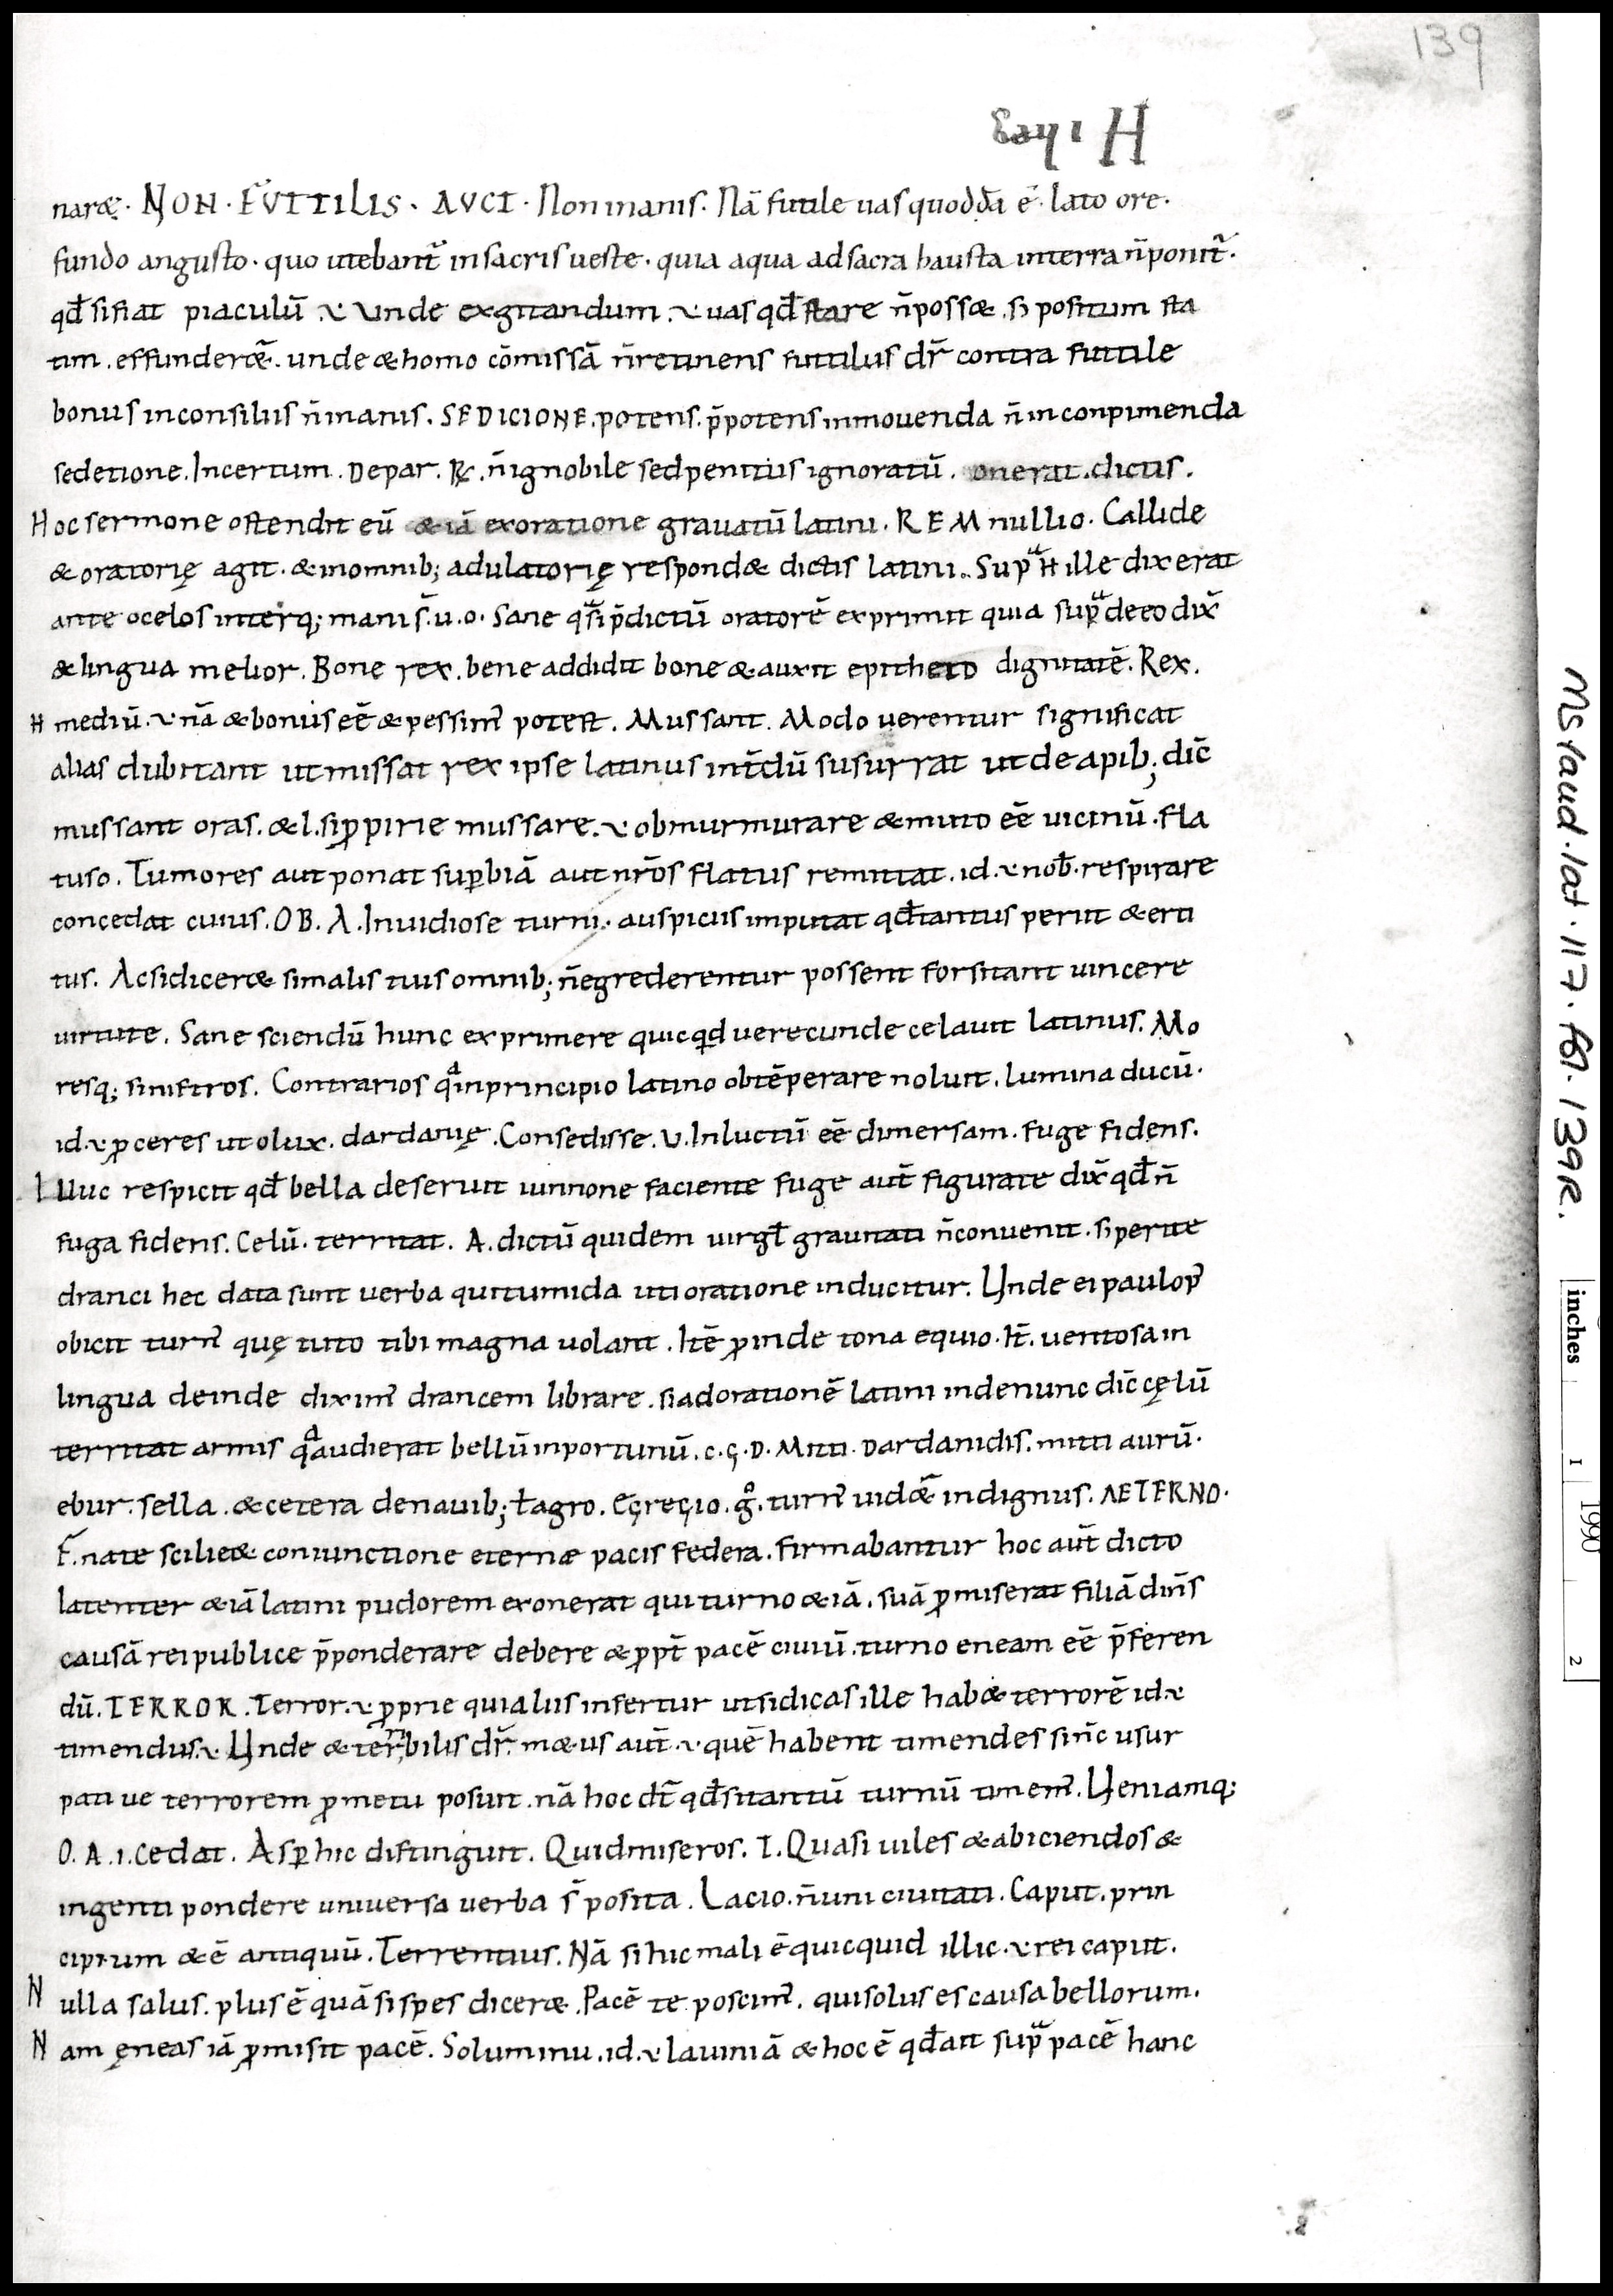 139
H
naræ. NON. FVTTILIS. AVCT. Non inanis. Nā futile uas quoddā ē. lato ore.
fundo angusto. quo utebant̄ in sacris ueste. quia aqua ad sacra hausta in terra n̄ ponit̄.
qđ si fiat piaculū. Unde exgitandum. uas qđ stare n̄ possæ. si positum sta
tim. effunderǣ. unde & homo cōmissā n̄ retinens futtilus dr̄ contra futtile
bonus in consiliis n̄ inanis. SEDICIONE. potens. p̄potens in mouenda n̄ in conpimenda
sedetione. Incertum. Depar. n̄ ignobile sed penitus ignoratū. onerat. dictis.
Hoc sermone ostendit eū & iā ex oratione grauatū latini. REM nullio. Callide
& oratorię agit. & in omnib; adulatorię respondæ dictis latini. Sup ille dixerat
ante ocelos interq; mani s̄. u. o. Sane qs̄i p̄dictū oratorē exprimit quia sup de eo dix̄
& lingua melior. Bone rex. bene addidit bone & auxit epitheto dignitatē. Rex.
mediū. nā & bonus eē & pessim̄ potest. Mussant. Modo uerentur significat
alias dubitant ut missat rex ipse latinus int̄dū susurrat ut de apib; dic̄
mussant oras. & l. si ꝓpirie mussare. obmurmurare & muto eē uicinū. fla
tuso. Tumores aut ponat suꝑbiā aut nr̄os flatus remittat. id. nob̄. respirare
concedat cuius. OB. A. Inuidiose turni. auspiciis imputat qđ tantus periit & erti
tus. Acsi diceræ si malis tuis omnib; n̄ egrederentur possent forsitant uincere
uirtute. Sane sciendū hunc exprimere quicqid uerecunde celauit latinus. Mo
resq; sinistros. Contrarios qa in principio latino obtēperare noluit. lumina ducū.
id. ꝓceres ut o lux. dardanię. Consedisse. U. In luctū eē dimersam. fuge fidens.
Illuc respicit qđ bella deseruit iunnone faciente fuge aut̄ figurate dix̄ qđ n̄
fuga fidens. Celū. territat. A. dictū quidem uirgl̄ grauitati n̄ conuenit. si perite
dranci hec data sunt uerba qui tumida uti oratione inducitur. Unde ei paulop̄
obicit turn̄ quę tuto tibi magna uolant. Itē ꝓinde tona equio. It̄. uentosa in
lingua deinde dixim̄ drancem librare. si ad orationē latini inde nunc dic̄ cęlū
territat armis qa audierat bellū inportunū. c. ę. D. Mitti. Dardanidis. mitti aurū.
ebur. sella. & cetera de nauib; ł agro. Egregio. g̊. turn̄ uidǣ indignus. AETERNO.
F. nate sciliæ coniunctione eternæ pacis federa. firmabantur hoc aut̄ dicto
latenter & iā latini pudorem exonerat qui turno & iā. suā ꝓmiserat filiā din̄s
causā reipublice p̄ponderare debere & ꝓpt̄ pacē ciuiū. turno eneam eē p̄feren
dū. TERROR. Terror. ꝓprie qui aliis infertur ut si dicas ille habæ terrorē id.
timendus. Unde & terribilis dr̄. mæus aut̄. quē habent timendes sin̄c usur
pati ue terrorem ꝓ metu posuit. nā hoc dt̄ qđ si tantū turnū timem̄. Ueniamq;
O. A. i. Cedat. Asꝑ hic distinguit. Quid miseros. T. Quasi uiles & abiciendos &
ingenti pondere uniuersa uerba s̄ posita. Lacio. n̄ uni ciuitati. Caput. prin
cipium & ē antiquū. Terrentius. Nā si hic mali ē quicquid illic. rei caput.
Nulla salus. plus ē quā si spes diceræ. Pacē te poscim̄. qui solus es causa bellorum.
Nam ęneas iā ꝓmisit pacē. Solum inu. id. lauiniā & hoc ē qđ ait sup pacē hanc
Ms laud. lat. 117. fol. 139R.
inches
1
2
1990